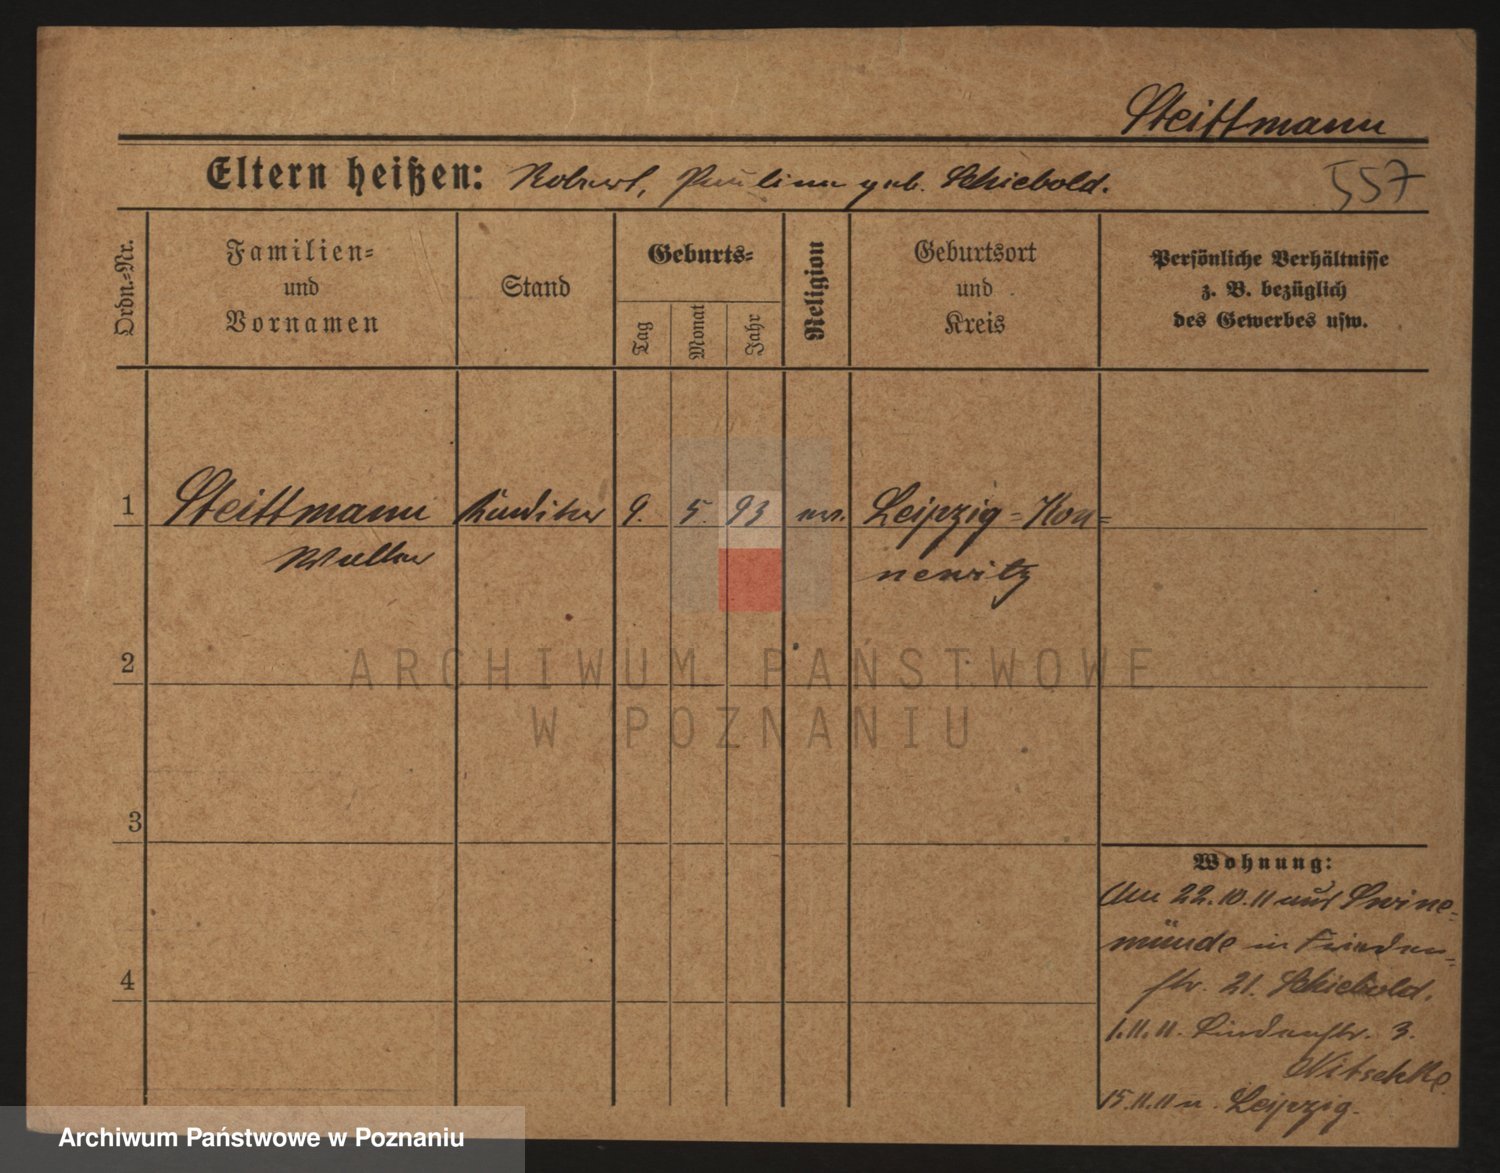 Steittmann
Eltern heißen: Robert, Pauline geb. Schiebold.
557
Ordn.-Nr.
Familien-
und
Vornamen
Stand
Geburts-
Tag
Monat
Jahr
Religion
Geburtsort
und
Kreis
Persönliche Verhältnisse
z. B. bezüglich
des Gewerbes usw.
1 Steittmann Konditor 9. 5. 93 ev. Leipzig-Kon-
Walter newitz
2
ARCHIWUM PAŃSTWOWE
W POZNANIU
3
Wohnung:
Am 22.10.11 aus Swine-
münde in Frieden-
4
str. 21. Schiebold.
1.11.11. Lindenstr. 3.
Nitschke
15.11.11 n. Leipzig.
Archiwum Państwowe w Poznaniu